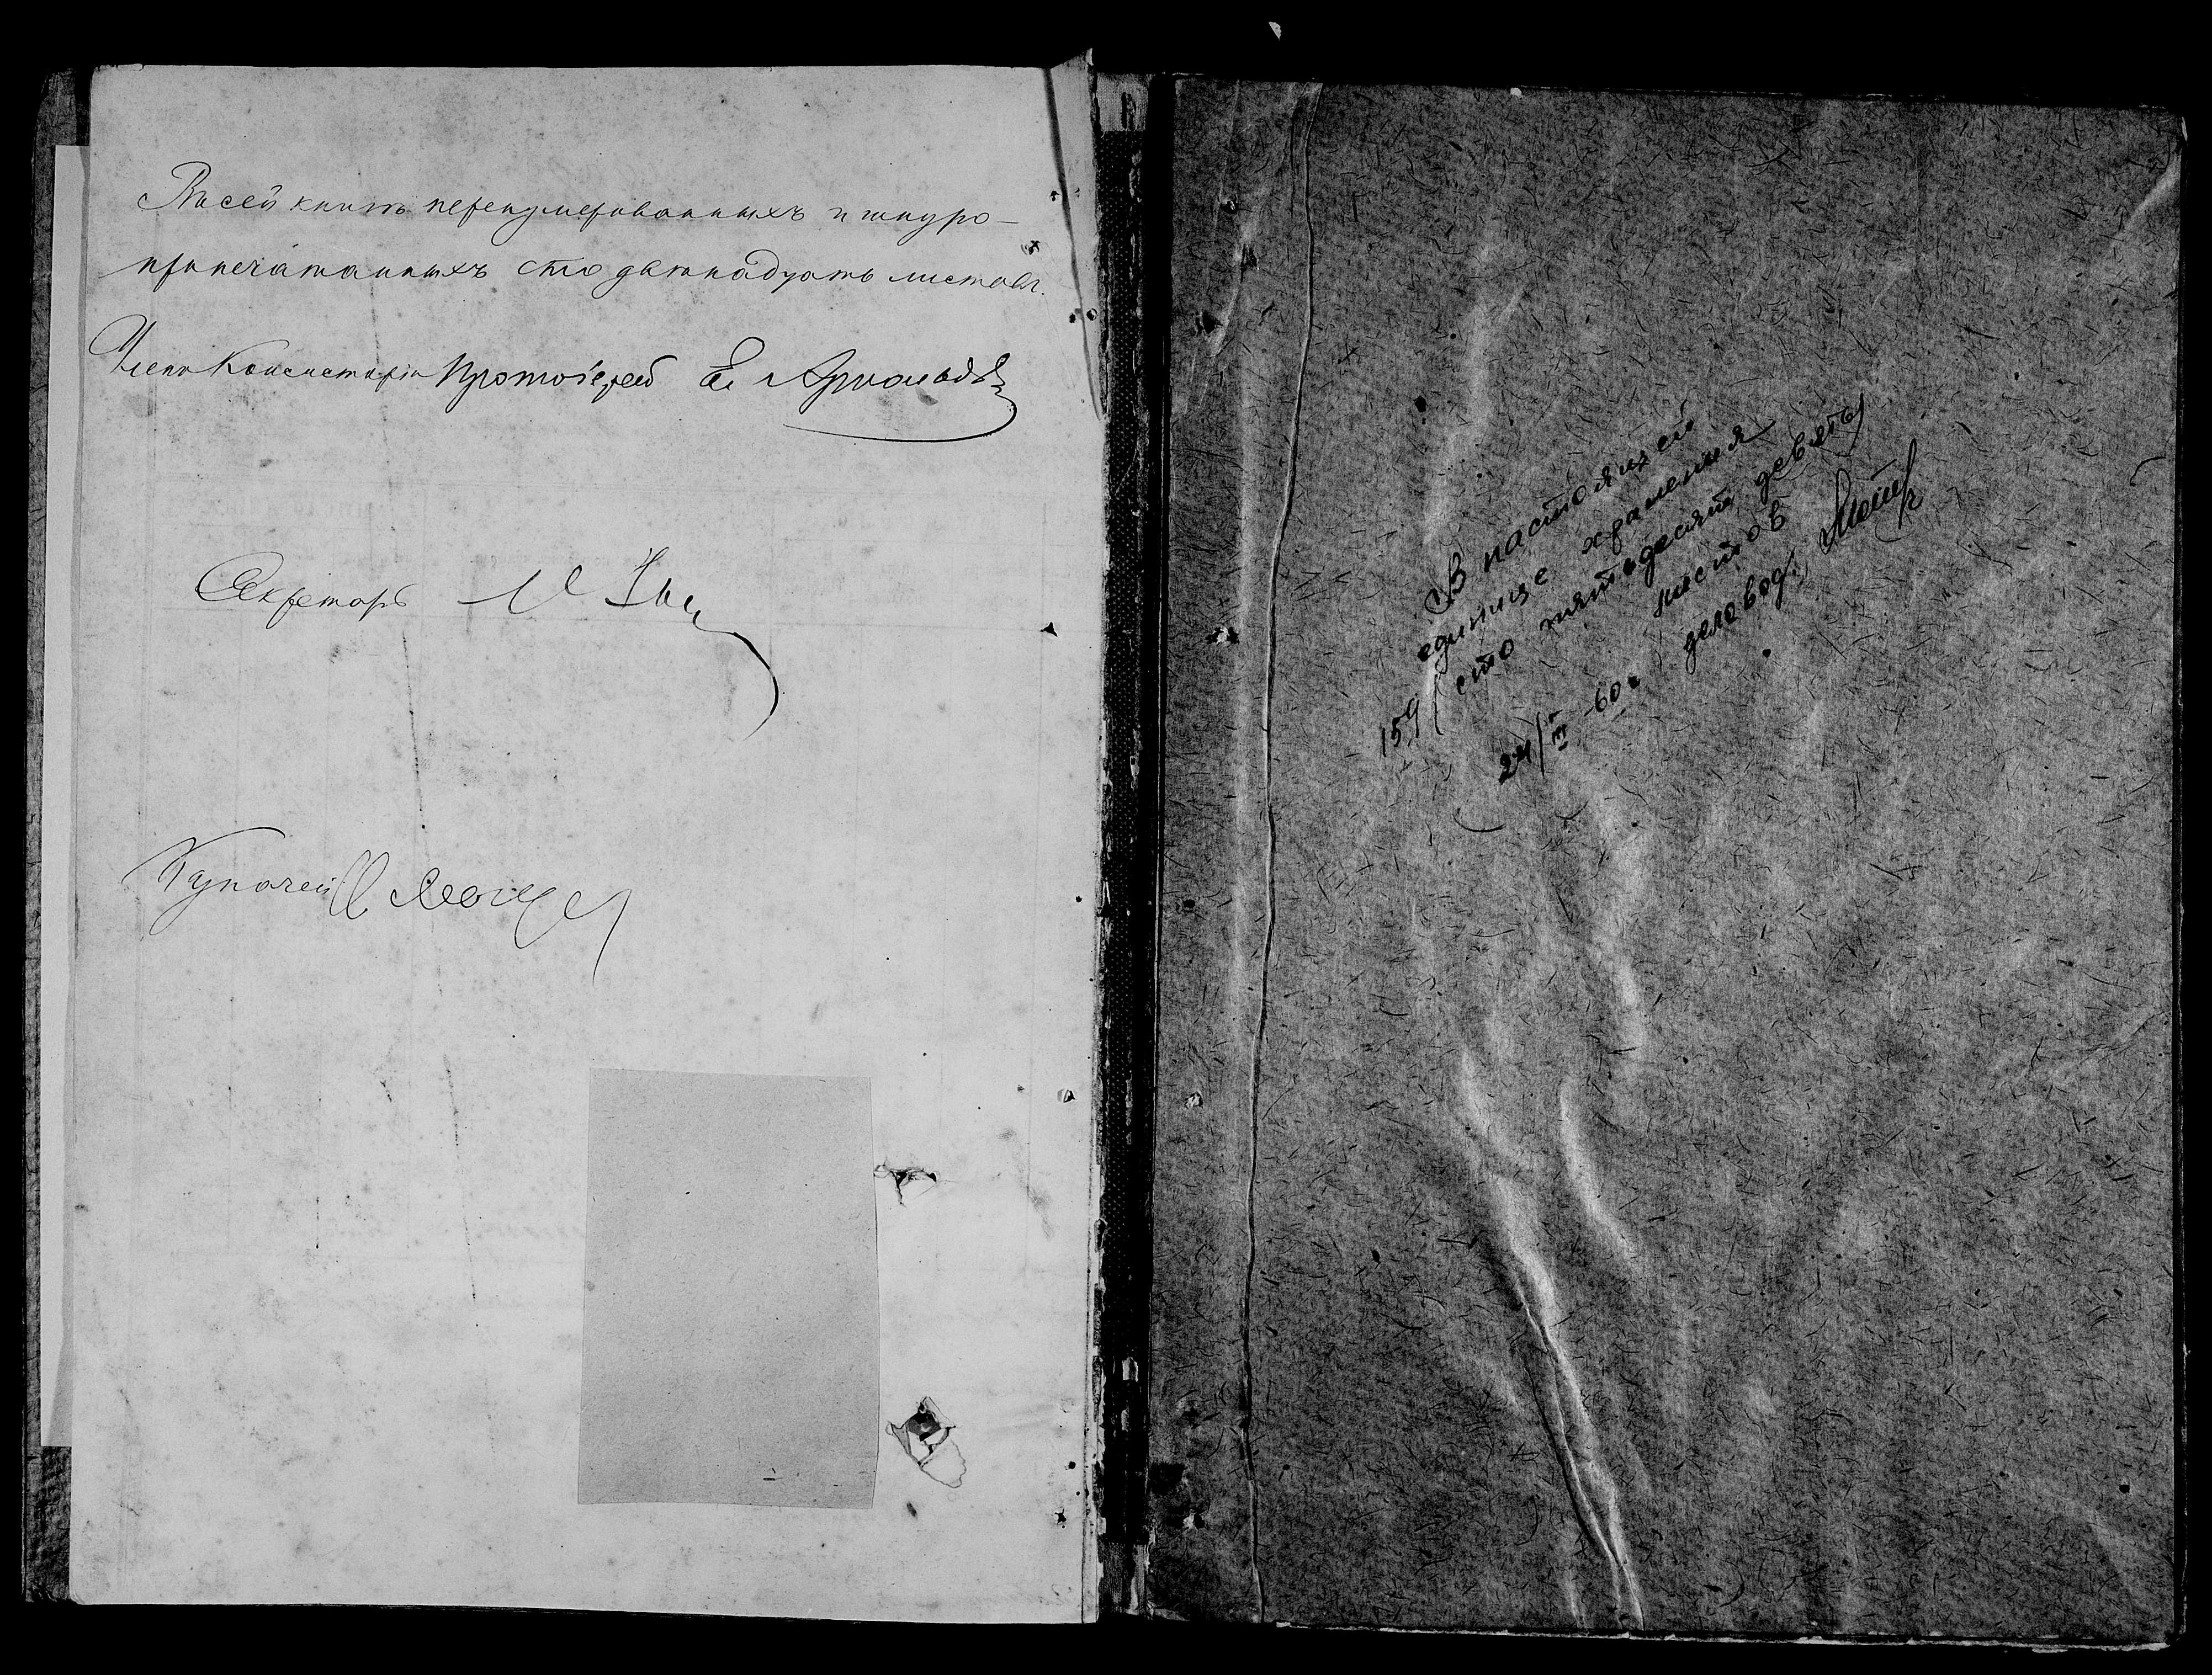 Въ сей книгѣ перенумерованныхъ и шнуро-
припечатанныхъ сто двѣнадцать листовъ.
Членъ Консисторіи Протоіерей Ел Арнольдовъ
Секретарь
В настоящей
единице хранения
159 (сто пятьдесят девять)
листов
24/III-60 г деловод: